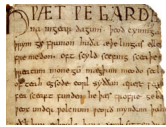 HǷÆT ǷE GARDE
na ingear dagum þeod cyninga
þrym ge frunon huða æþelingas elle
fre medon. oft scyld scefing sceaþe
þreatum monegū mægþum meodo setla
of teah egsode eorl syððan ærest ƿear
fea sceaft funden he þæs frofre geba
ƿeox under ƿolcnum ƿeorð myndum þah